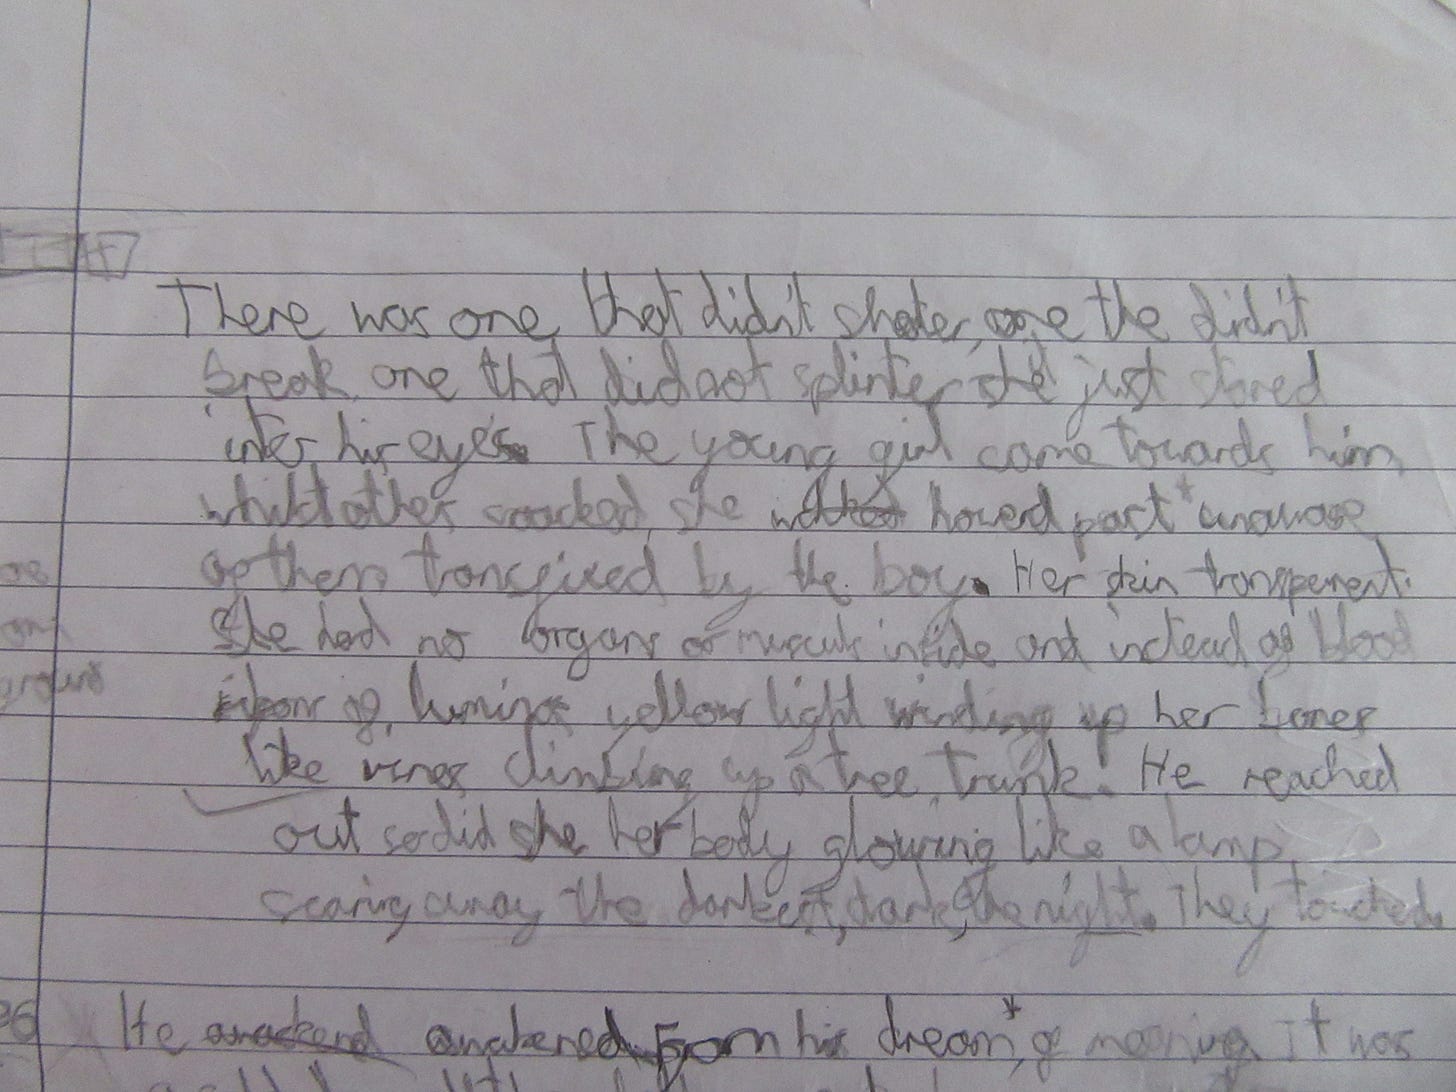 There was one, that didn't shater, one the didn't
break, one that did not splinter she just stared
inter his eyes. The young girl came towards him,
whilst others she hoverd past
of them transfixed by the boy. Her skin transperent.
She had no organs or muscule inside and instead of blood
of yellow light winding up her bones
like vines climbing up a tree trunk. He reached
out so did she her body glowing like a lamp,
scaring away the darkest, dark, the night. They touched.
He awakened from his dream, of meaning it was